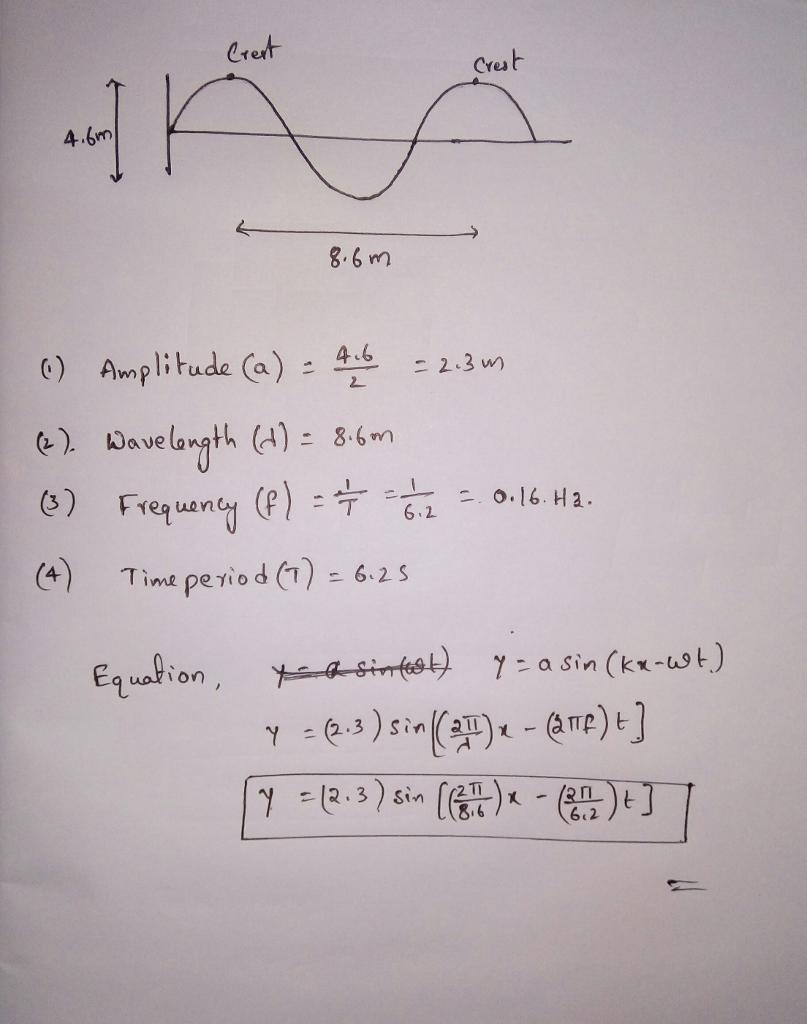 Crest
Crest
4.6m
8.6 m
(1) Amplitude (a) = 4.6/2 = 2.3 m
(2). Wavelength (λ) = 8.6m
(3) Frequency (f) = 1/T = 1/6.2 = 0.16. Hz.
(4) Time period (T) = 6.2 S
Equation, y = a sin(ωt) y = a sin (kx-ωt)
y = (2.3) sin[(2π/λ)x - (2πf)t]
y = (2.3) sin [(2π/8.6)x - (2π/6.2)t]